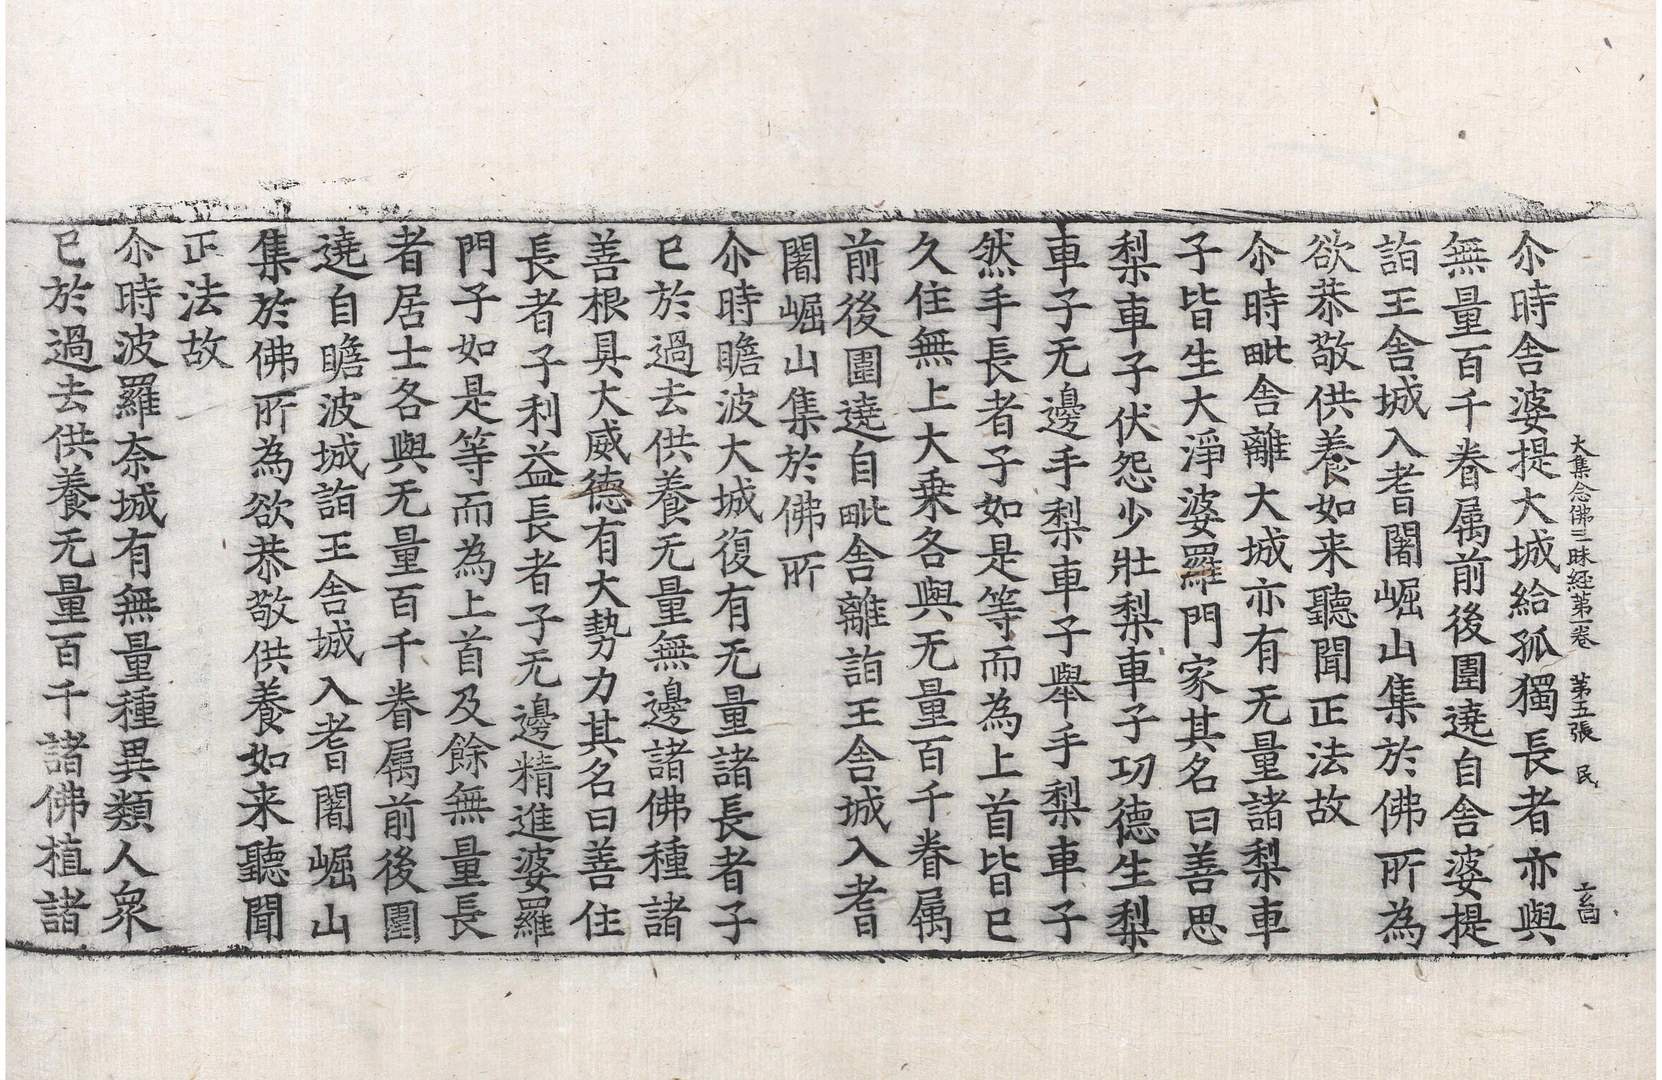 大集念佛三昧経第一卷 第五張 民
尒時舍婆提大城給孤獨長者亦與
無量百千眷属前後圍遶自舍婆提
詣王舍城入耆闍崛山集於佛所為
欲恭敬供養如来聽聞正法故
尒時毗舍離大城亦有无量諸梨車
子皆生大淨婆羅門家其名曰善思
梨車子伏怨少壯梨車子功德生梨
車子无邊手梨車子舉手梨車子
然手長者子如是等而為上首皆已
久住無上大乗各與无量百千眷属
前後圍遶自毗舍離詣王舍城入耆
闍崛山集於佛所
尒時瞻波大城復有无量諸長者子
已於過去供養无量無邊諸佛種諸
善根具大威德有大勢力其名曰善住
長者子利益長者子无邊精進婆羅
門子如是等而為上首及餘無量長
者居士各與无量百千眷属前後圍
遶自瞻波城詣王舍城入耆闍崛山
集於佛所為欲恭敬供養如来聽聞
正法故
尒時波羅奈城有無量種異類人衆
已於過去供養无量百千諸佛植諸